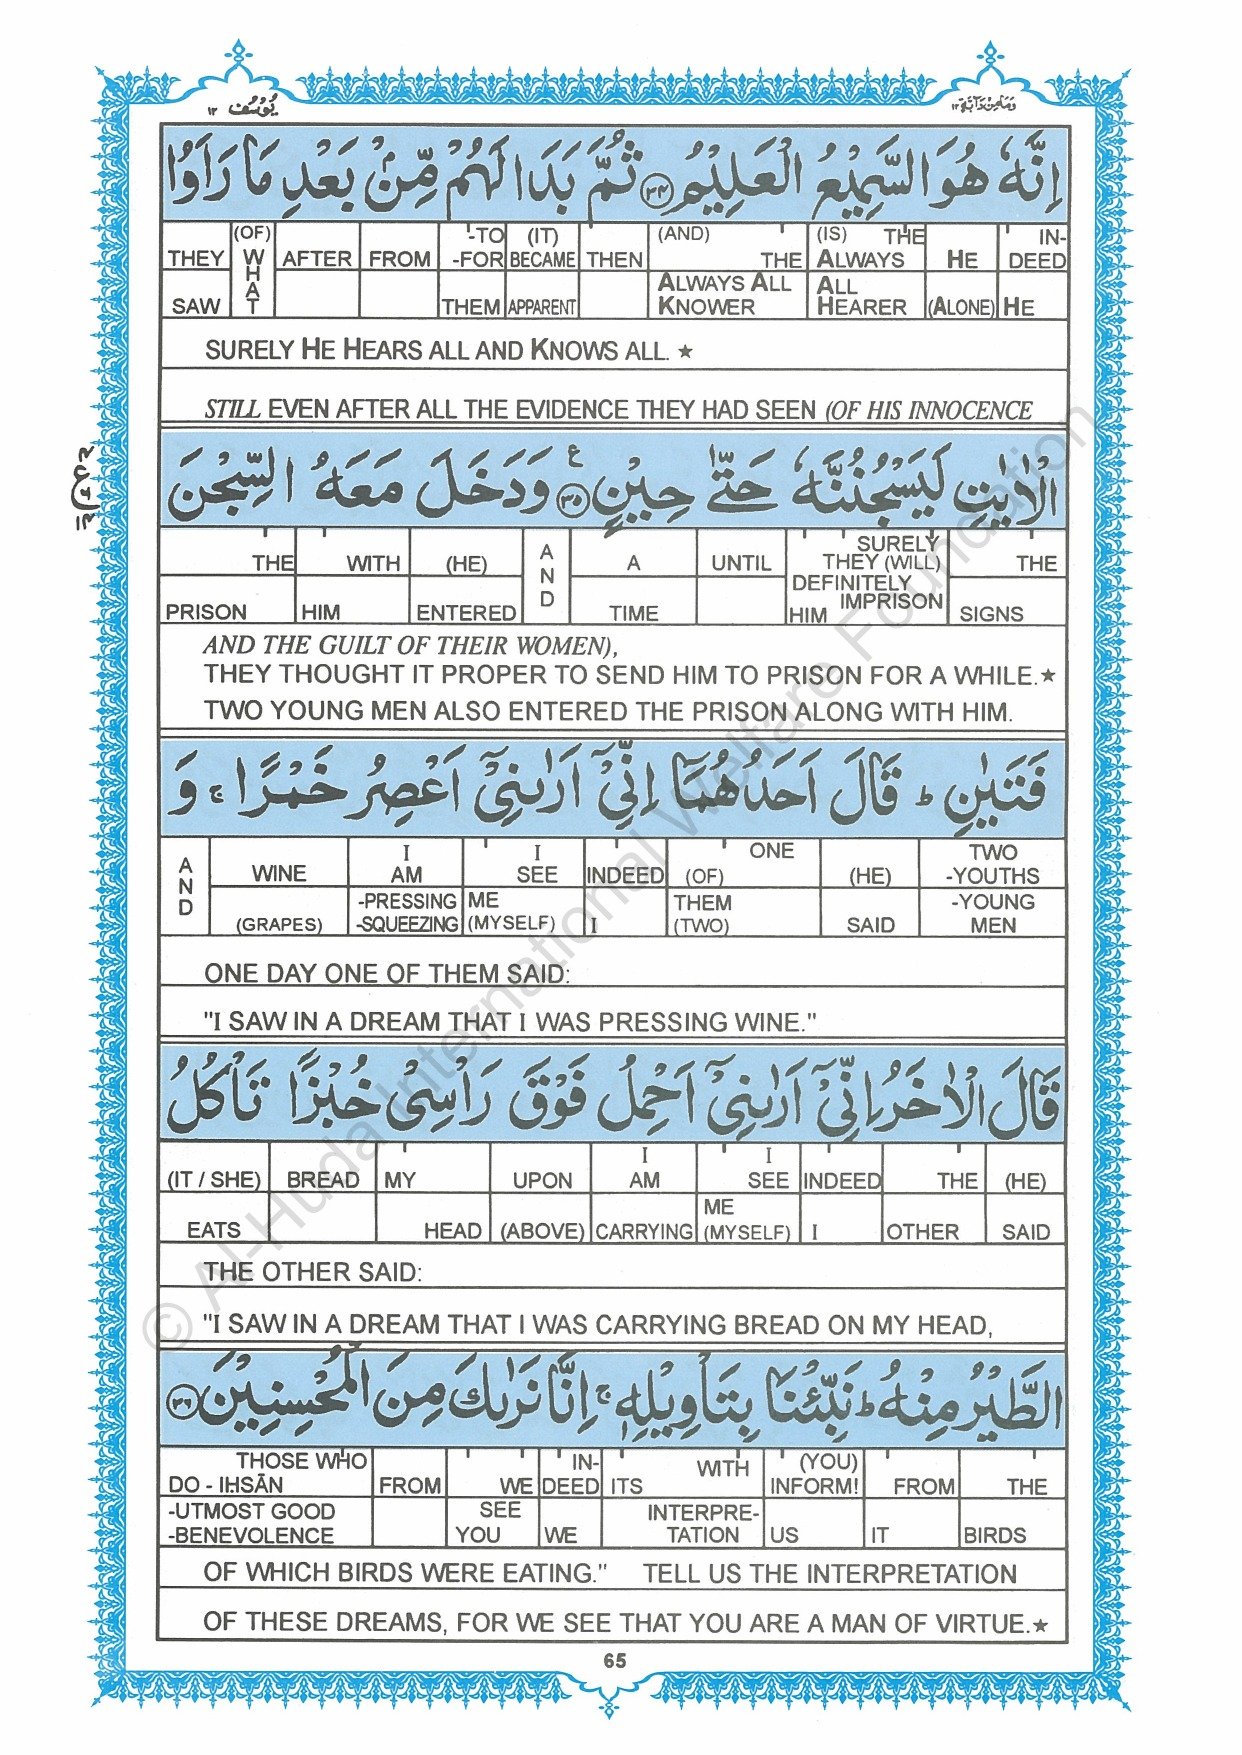 يُوْسُف ١٢
وَمَا مِنْ دَآبَّة ١٢
اِنَّهٗ هُوَ السَّمِيْعُ الْعَلِيْمُ ﴿٣٤﴾ ثُمَّ بَدَا لَهُمْ مِّنْۢ بَعْدِ مَا رَاَوُا
THEY (OF) WHAT AFTER FROM -TO -FOR (IT) BECAME THEN (AND) THE (IS) THE ALWAYS HE IN-DEED
SAW THEM APPARENT ALWAYS ALL KNOWER ALL HEARER (ALONE) HE
SURELY HE HEARS ALL AND KNOWS ALL. ★
STILL EVEN AFTER ALL THE EVIDENCE THEY HAD SEEN (OF HIS INNOCENCE
الْاٰيٰتِ لَيَسْجُنُنَّهٗ حَتّٰى حِيْنٍ ﴿٣٥﴾ ع وَدَخَلَ مَعَهُ السِّجْنَ
THE WITH (HE) AND A UNTIL SURELY THEY (WILL) THE
PRISON HIM ENTERED TIME DEFINITELY IMPRISON HIM SIGNS
AND THE GUILT OF THEIR WOMEN),
THEY THOUGHT IT PROPER TO SEND HIM TO PRISON FOR A WHILE.★
TWO YOUNG MEN ALSO ENTERED THE PRISON ALONG WITH HIM.
فَتَيٰنِ ؕ قَالَ اَحَدُهُمَاۤ اِنِّيْۤ اَرٰىنِيْۤ اَعْصِرُ خَمْرًا ۚ وَ
AND WINE I AM I SEE INDEED ONE (OF) (HE) TWO -YOUTHS
(GRAPES) -PRESSING -SQUEEZING ME (MYSELF) I THEM (TWO) SAID -YOUNG MEN
ONE DAY ONE OF THEM SAID:
"I SAW IN A DREAM THAT I WAS PRESSING WINE."
قَالَ الْاٰخَرُ اِنِّيْۤ اَرٰىنِيْۤ اَحْمِلُ فَوْقَ رَاْسِيْ خُبْزًا تَاْكُلُ
(IT / SHE) BREAD MY UPON I AM I SEE INDEED THE (HE)
EATS HEAD (ABOVE) CARRYING ME (MYSELF) I OTHER SAID
THE OTHER SAID:
"I SAW IN A DREAM THAT I WAS CARRYING BREAD ON MY HEAD,
الطَّيْرُ مِنْهُ ؕ نَبِّئْنَا بِتَاْوِيْلِهٖ ۚ اِنَّا نَرٰىكَ مِنَ الْمُحْسِنِيْنَ ﴿٣٦﴾
THOSE WHO DO - IHSĀN FROM WE IN-DEED ITS WITH (YOU) INFORM! FROM THE
-UTMOST GOOD -BENEVOLENCE SEE YOU WE INTERPRE-TATION US IT BIRDS
OF WHICH BIRDS WERE EATING." TELL US THE INTERPRETATION
OF THESE DREAMS, FOR WE SEE THAT YOU ARE A MAN OF VIRTUE.★
65
© Al-Huda International Welfare Foundation